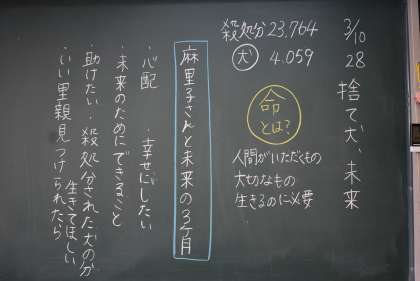 3/10
28
捨て犬、未来
殺処分23.764
犬 4.059
命
とは?
人間がいただくもの
大切なもの
生きるのに必要
麻里子さんと未来の3ケ月
・心配 ・幸せにしたい
・未来のためにできること
・助けたい・殺処分された犬の分
生きてほしい
・いい里親見つけられたら